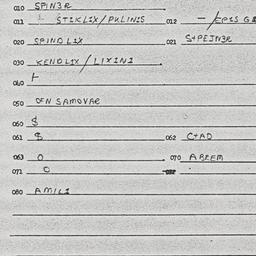 010 SPIN3R
011 STIKLIX/PKLINIS 012 — /EPSS GI
020 SPINDLIX 021 S+PEJN3R
030 KENDLIX/LIXINI
040 
050 DEN SAMOVAR
060 $
061 $ 062 C+AD
063 0 070 AREEM
071 0
080 AMILI